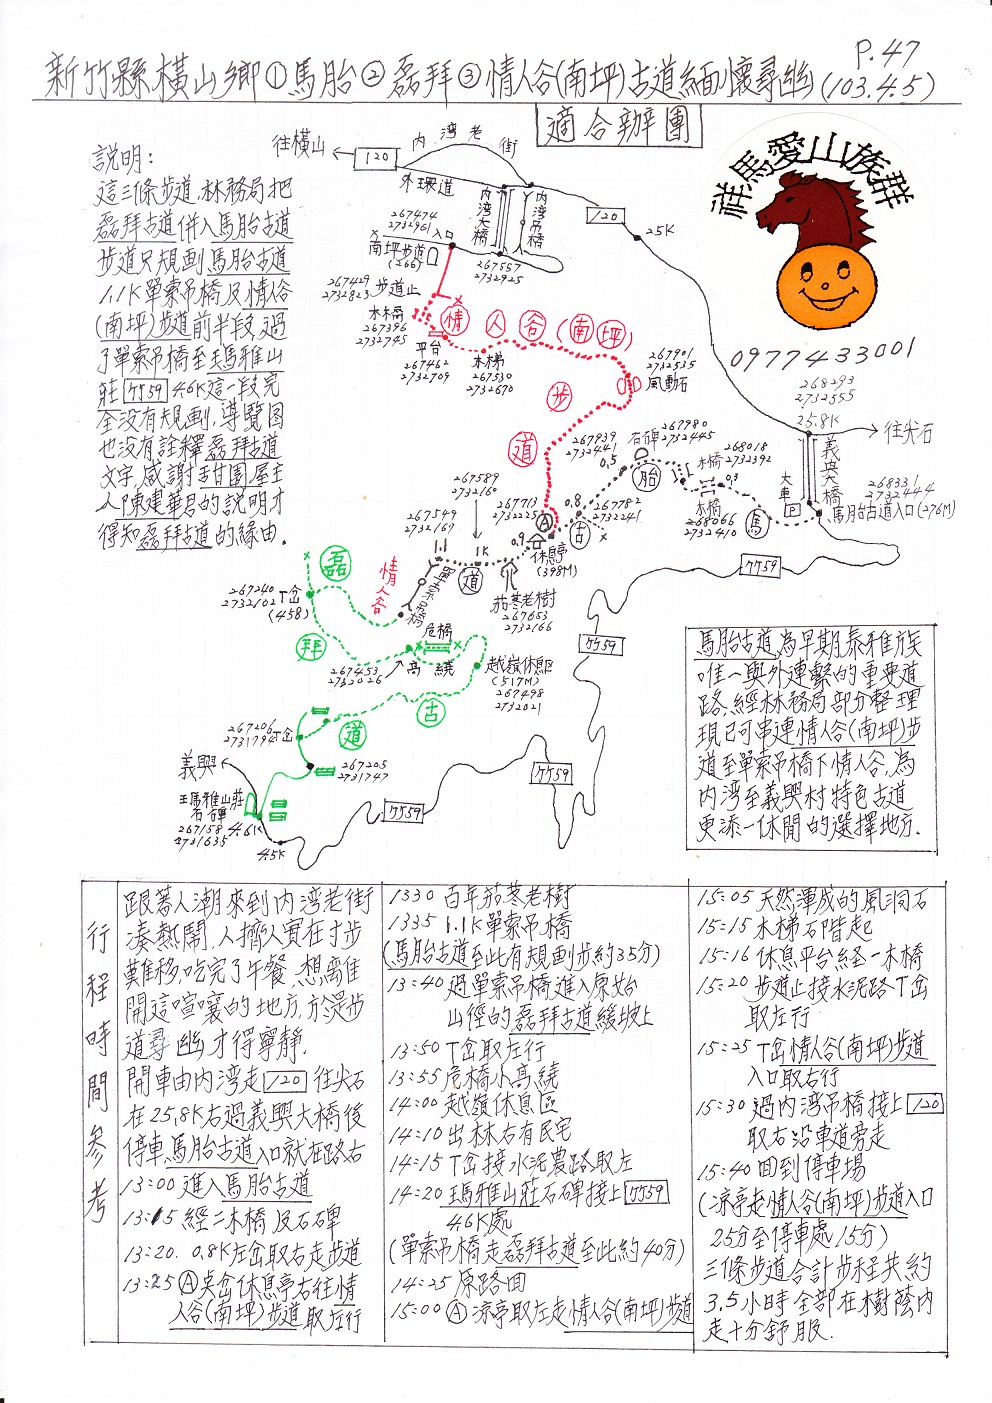 P.47
新竹縣橫山鄉①馬胎②磊拜③情人谷(南坪)古道緬懷尋幽(103.4.5)
適合辦團
祥馬愛山族群
0977433001
說明:
這三條步道,林務局把
磊拜古道併入馬胎古道
步道只規劃馬胎古道
1.1K單索吊橋及情人谷
(南坪)步道前半段,過
了單索吊橋至瑪雅山
莊 竹59 4.6K這一段完
全沒有規劃,導覽图
也沒有詮釋磊拜古道
文字,感謝
人陳建華君的說明才
得知磊拜古道的緣由.
往橫山
120
內湾老街
外環道
內湾大橋
內湾吊橋
120
25K
267474
2732961
入口
南坪步道
(266)
267557
2732925
267429
2732823
步道止
木木橋
267396
2732745
平台
267462
2732709
木梯
267530
2732670
情人谷(南坪)步道
267901
2732535
風動石
268293
2732555
25.8K
往尖石
義興大橋
大車
268331
2732444
馬胎古道入口(276M)
267939
2732441
石碑
267980
2732445
0.5
268018
2732392
木橋
0.3
木橋
268066
2732410
馬胎古道
267713
2732225
Ⓐ
0.8
267782
2732241
0.9
休息亭
(398M)
267589
2732160
1K
267549
2732167
1.1
單索吊橋
茄苳老樹
267653
2732166
情人谷
磊拜古道
267240
2732102
T岔
(458)
危橋
高繞
267453
2732026
越嶺休息區
(517M)
267498
2732021
267206
2731794
T岔
267205
2731747
義興
瑪雅山莊
石碑
267158
2731635
4.6K
4.5K
竹59
竹59
竹59
竹59
馬胎古道,為早期泰雅族
唯一與外連繫的重要道
路,經林務局部分整理
現已可串連情人谷(南坪)步
道至單索吊橋下情人谷,為
內湾至義興村特色古道
更添一休閒的選擇地方.
行程時間參考
跟著人潮來到內湾老街
湊熱鬧,人擠人實在寸步
難移,吃完了午餐,想離
開這喧嚷的地方,於是步
道尋幽才得寧靜.
開車由內湾走 120 往尖石
在25.8K右過義興大橋後
停車,馬胎古道入口就在路右
13:00 進入馬胎古道
13:15 經二木橋及石碑
13:20. 0.8K左岔取右走步道
13:25 Ⓐ叉岔休息亭右往情
人谷(南坪)步道取左行
1330 百年茄苳老樹
1335 1.1K單索吊橋
(馬胎古道至此有規劃步約35分)
13:40 過單索吊橋進入原始
山徑的磊拜古道緩坡上
13:50 T岔取左行
13:55 危橋小高繞
14:00 越嶺休息區
14:10 出林右有民宅
14:15 T岔接水泥農路取左
14:20 瑪雅山莊石碑接上 竹59
4.6K處
(單索吊橋走磊拜古道至此約40分)
14:25 原路回
15:00 Ⓐ涼亭取左走情人谷(南坪)步道
15:05 天然渾成的風洞石
15:15 木梯石階起
15:16 休息平台経一木橋
15:20 步道止接水泥路T岔
取左行
15:25 T岔情人谷(南坪)步道
入口取右行
15:30 過內湾吊橋接上 120
取右沿車道旁走
15:40 回到停車場
(涼亭走情人谷(南坪)步道入口
25分至停車處15分)
三條步道合計步程共約
3.5小時全部在樹蔭內
走十分舒服.